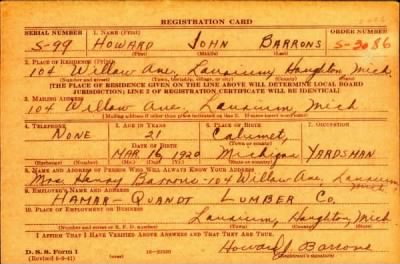 REGISTRATION CARD
SERIAL NUMBER 1. NAME (Print) ORDER NUMBER
S-99 HOWARD JOHN BARRONS S-3086
(First) (Middle) (Last)
2. PLACE OF RESIDENCE (Print)
104 Willow Ave, Laurium, Houghton, Mich
(Number and street) (Town, township, village, or city) (County) (State)
[THE PLACE OF RESIDENCE GIVEN ON THE LINE ABOVE WILL DETERMINE LOCAL BOARD
JURISDICTION; LINE 2 OF REGISTRATION CERTIFICATE WILL BE IDENTICAL]
3. MAILING ADDRESS
104 Willow Ave, Laurium Mich
4. TELEPHONE 5. AGE IN YEARS 6. PLACE OF BIRTH 7. OCCUPATION
NONE 21 Calumet,
DATE OF BIRTH (Town or county)
MAR 16 1920 Michigan YARDSMAN
(Exchange) (Number) (Mo.) (Day) (Yr.) (State or country)
8. NAME AND ADDRESS OF PERSON WHO WILL ALWAYS KNOW YOUR ADDRESS
Mrs. Henry Barrons - 104 Willow Ave, Laurium Mich
9. EMPLOYER'S NAME AND ADDRESS
HAMAR - QUANDT LUMBER CO.
10. PLACE OF EMPLOYMENT OR BUSINESS
Laurium, Houghton, Mich
(Number and street or R. F. D. number) (Town) (County) (State)
I AFFIRM THAT I HAVE VERIFIED ABOVE ANSWERS AND THAT THEY ARE TRUE.
D. S. S. Form 1 Howard J. Barrons
(Revised 6-9-41)